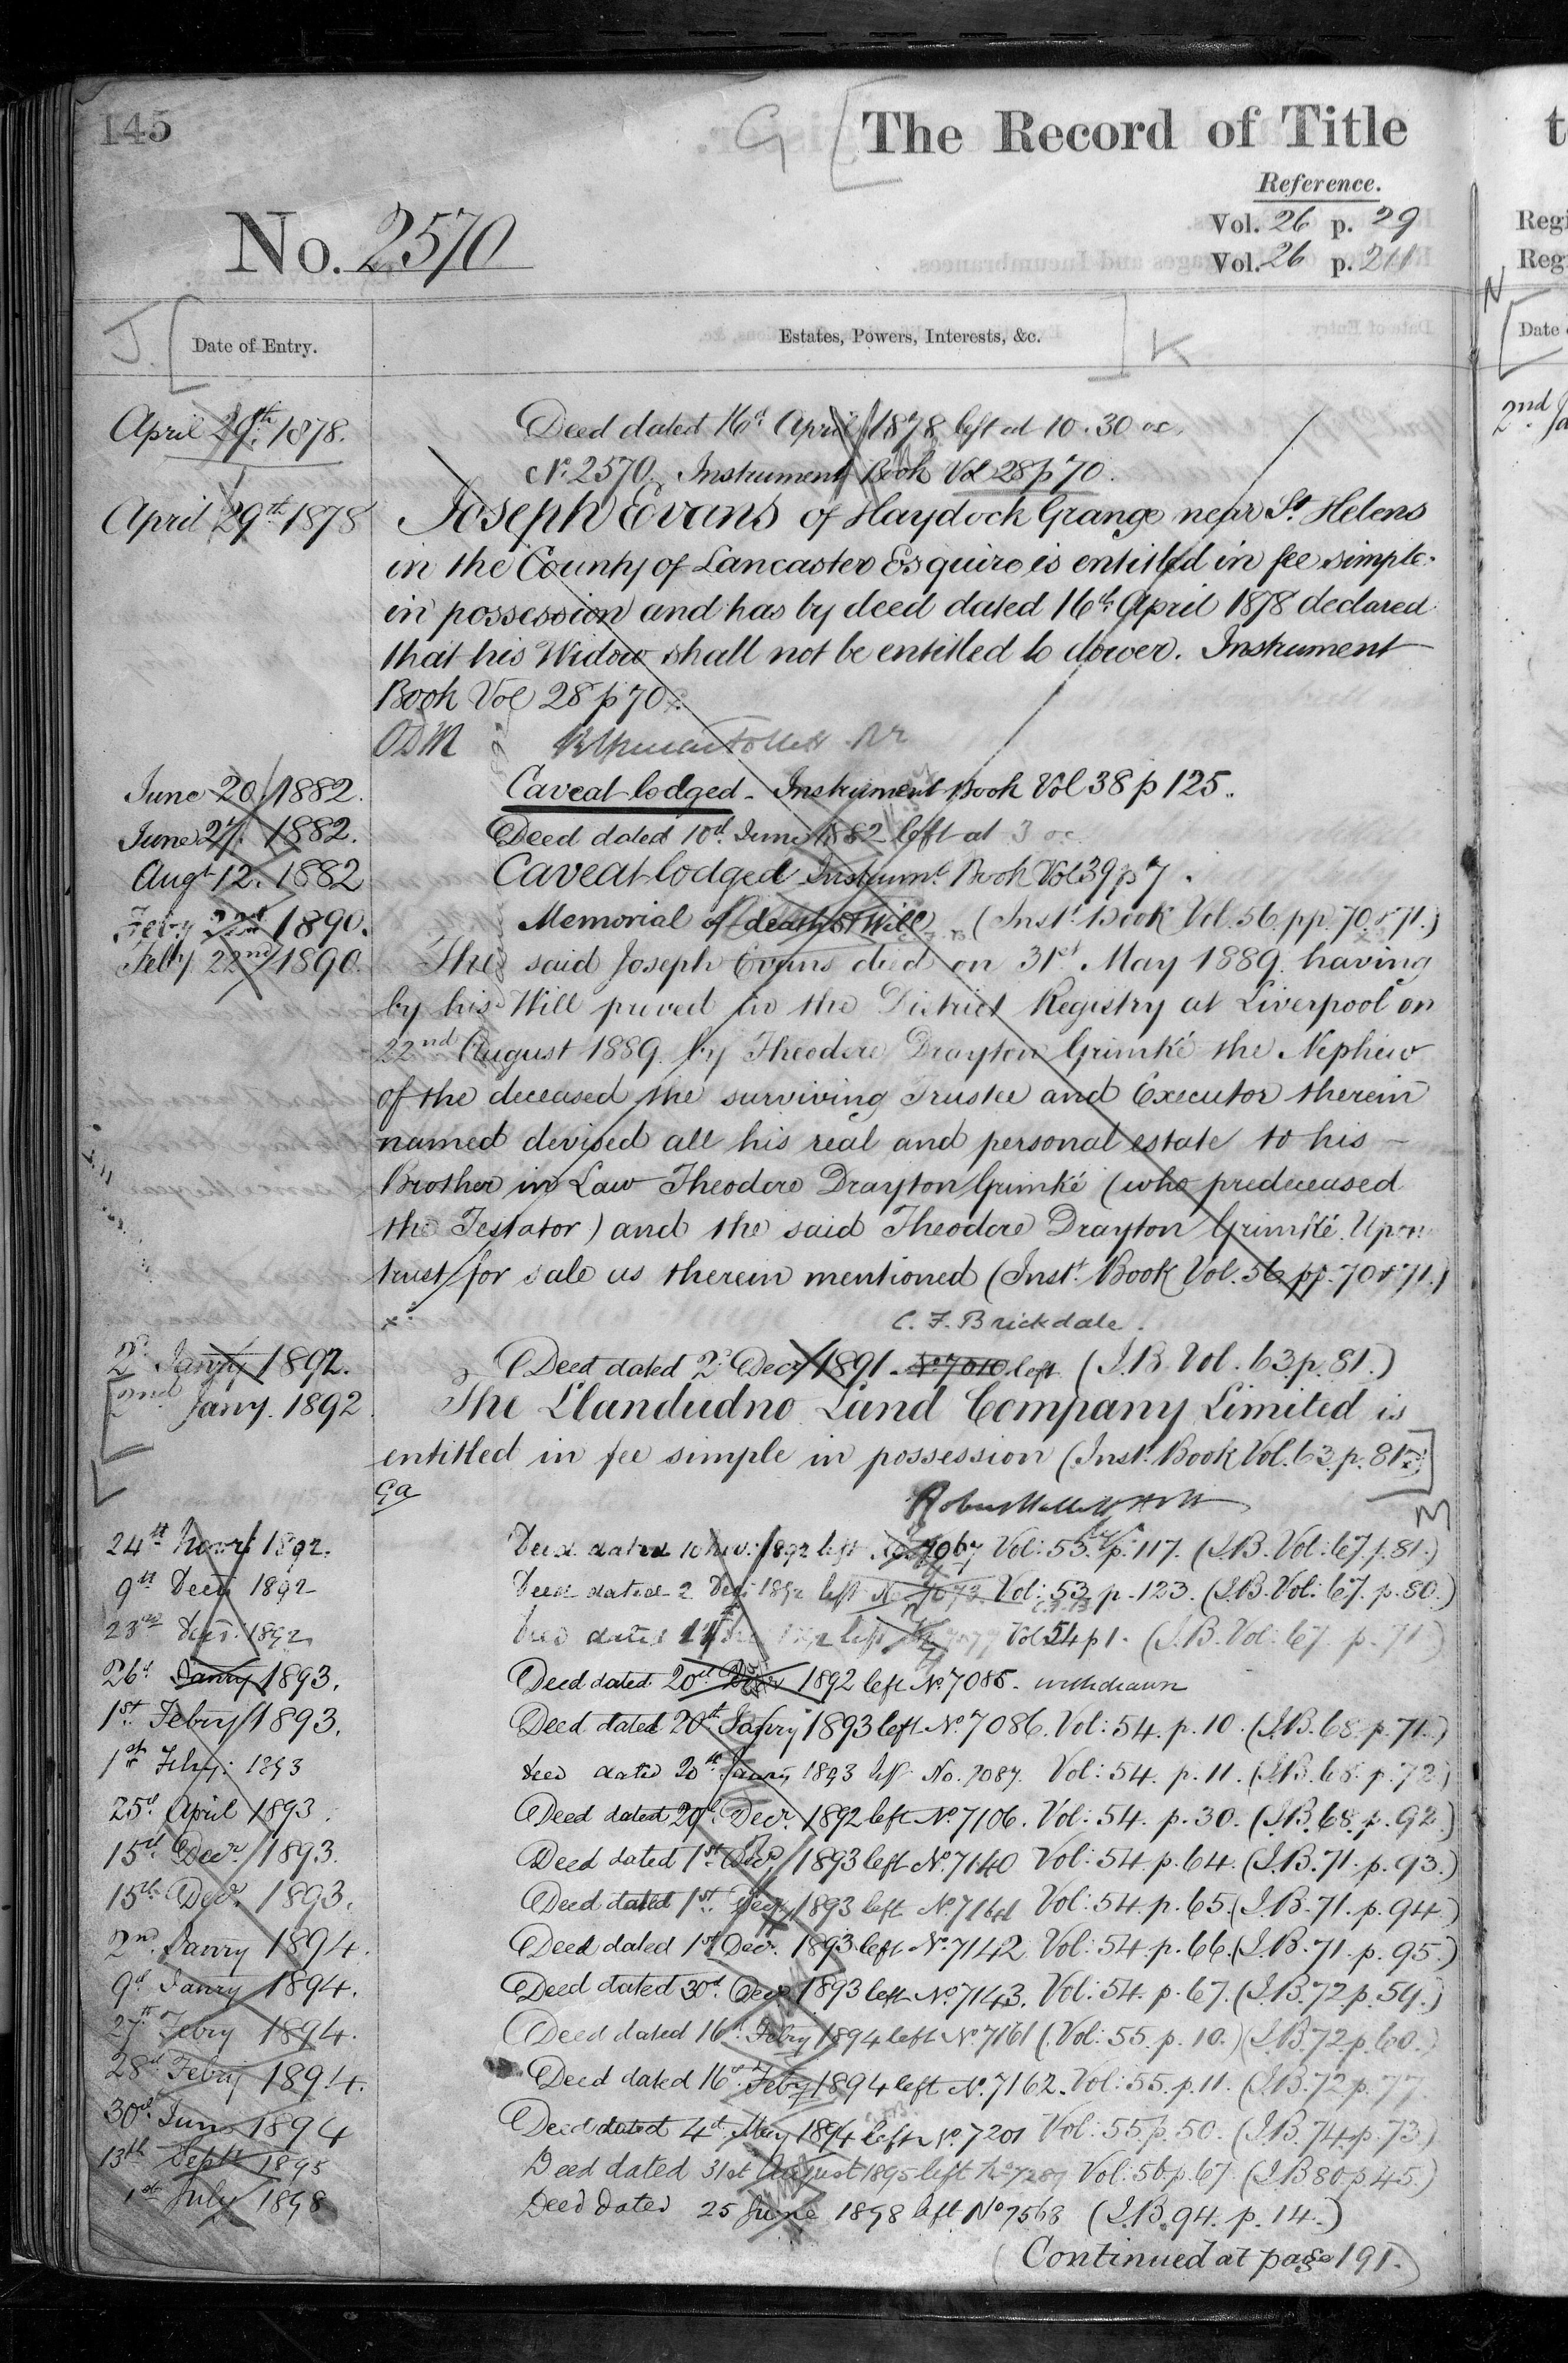 145
G [ The Record of Title
Reference.
No. 2570
Vol. 26 p. 29
Vol. 26 p. 211
J. [ Date of Entry.
Estates, Powers, Interests, &c. ] K
April 29th 1878. Deed dated 16th April 1878 left at 10.30 oc.
No. 2570 Instrument Book Vol 28 p 70.
April 29th 1878 Joseph Evans of Haydock Grange near St. Helens
in the County of Lancaster Esquire is entitled in fee simple
in possession and has by deed dated 16th April 1878 declared
that his Widow shall not be entitled to dower. Instrument
Book Vol 28 p 70.
ODM
June 20 1882. Caveat lodged - Instrument Book Vol 38 p 125.
June 27. 1882. Deed dated 10th June 1882 left at 3 oc
Augt 12. 1882 Caveat lodged Instrumt Book Vol 39 p 7.
Feby 22nd 1890. Memorial of death & Will (Inst. Book Vol. 56. pp. 70 & 71.)
Feby 22nd 1890. The said Joseph Evans died on 31st May 1889 having
by his Will proved in the District Registry at Liverpool on
22nd August 1889 by Theodore Drayton Grimké the Nephew
of the deceased the surviving Trustee and Executor therein
named devised all his real and personal estate to his
Brother in Law Theodore Drayton Grimké (who predeceased
the Testator) and the said Theodore Drayton Grimké Upon
trust for sale as therein mentioned (Inst. Book Vol. 56 pp. 70 & 71.)
C. F. Brickdale.
2d. Janry 1892. Deed dated 2d Decr 1891. No 7010 left (I.B. Vol. 63. p. 81.)
[2nd Jany. 1892. The Llandudno Land Company Limited is
entitled in fee simple in possession (Inst. Book Vol. 63. p. 81)]
L
M
24th Novr 1892. Deed dated 10 Nov: 1892 left No 7067 Vol: 53. p. 117. (I.B. Vol: 67. p. 81.)
9th Decr 1892 Deed dated 2 Decr 1892 left No 7073 Vol: 53 p. 123. (I.B. Vol: 67. p. 80.)
23rd Decr. 1892 Deed dated 1892 left 7077 Vol 54 p 1. (I.B. Vol: 67 p. 71)
26th Janry 1893. Deed dated 20th Decr 1892 left No. 7085. withdrawn
1st. Febry 1893. Deed dated 20th Janry 1893 left No. 7086. Vol: 54. p. 10. (I.B. 68. p. 71.)
1st Febry: 1893 Deed dated 20th Janry 1893 left No. 7087. Vol: 54. p. 11. (I.B. 68. p. 72.)
25th April 1893. Deed dated 20th Decr. 1892 left No. 7106. Vol: 54. p. 30. (I.B. 68. p. 92.)
15th Decr. 1893. Deed dated 1st Decr. 1893 left No. 7140 Vol: 54. p. 64. (I.B. 71. p. 93.)
15th Decr. 1893. Deed dated 1st. Decr 1893 left No. 7141 Vol: 54. p. 65. (I.B. 71. p. 94.)
2nd. Janry 1894. Deed dated 1st Decr. 1893 left No. 7142 Vol: 54. p. 66. (I.B. 71. p. 95.)
9th Janry 1894. Deed dated 30th. Decr 1893 left No. 7143. Vol: 54. p. 67. (I.B. 72 p. 59.)
27th Febry 1894. Deed dated 16th. Febry 1894 left No. 7161 (Vol: 55. p. 10.) (I.B. 72 p. 60.)
28th Febry 1894. Deed dated 16th. Febry 1894 left No. 7162. Vol: 55. p. 11. (I.B. 72 p. 77.
30th. June 1894 Deed dated 4th May 1894 left No. 7201 Vol: 55 p. 50. (I.B. 74. p. 73.)
13th Septr 1895 Deed dated 31st August 1895 left No 7289 Vol: 56. p. 67. (I.B 80 p. 45.)
1st July 1898 Deed dated 25 June 1898 left No 7568 (I.B. 94. p. 14.)
(Continued at page 191.)
t
Regi
Reg
N
[ Date
2nd Ja